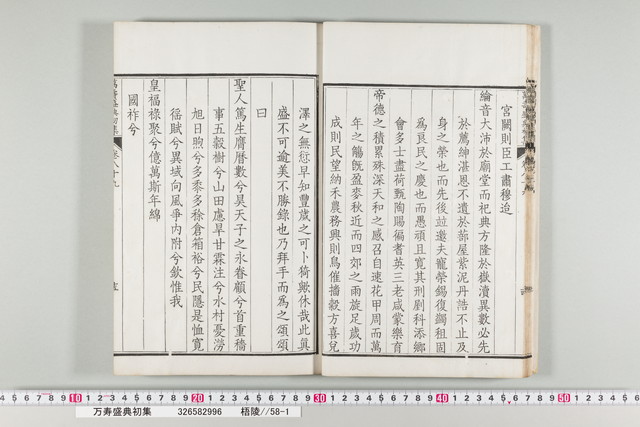 宮闕則臣工肅穆迨
綸音大沛於廟堂而祀典方隆於嶽瀆異數必先
於薦紳湛恩不遺於蔀屋紫泥丹誥不止及
身之榮也而先後竝邀夫寵榮錫復蠲租固
爲良民之慶也而愚頑且寬其刑劉科添鄉
會多士盡荷甄陶賜徧耆英三老咸蒙樂育
帝德之積累殊深天和之感召自速花甲周而萬
年之觴旣盈麥秋近而四郊之雨旋足歲功
成則民望納禾農務興則鳥催播穀方喜兒
澤之無愆早知豐歲之可卜猗歟休哉此眞
盛不可逾美不勝錄也乃拜手而爲之頌頌
曰
聖人篤生膺曆數兮昊天子之永眷顧兮首重穡
事五穀樹兮山田慮旱甘霖注兮水村憂澇
旭日煦兮多黍多稌倉箱裕兮民隱是恤寬
徭賦兮異域向風爭內附兮欽惟我
皇福祿聚兮億萬斯年綿
國祚兮
10 20 30 40 50
万寿盛典初集 326582996 梧陵//58-1